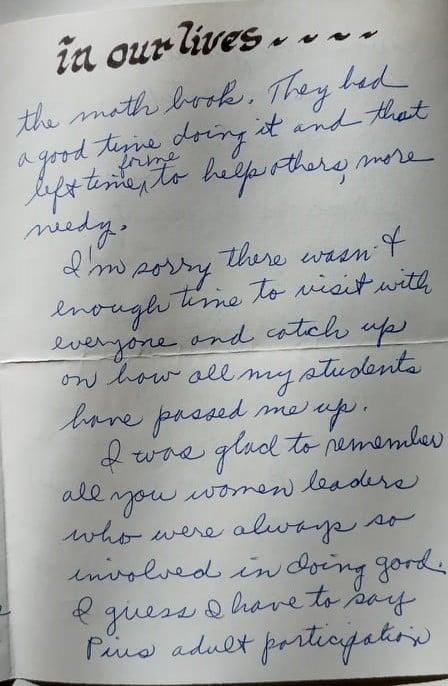 in our lives....
the math book. They had
a good time doing it and that
for me
left time, to help others, more
needy.
I'm sorry there wasn't
enough time to visit with
everyone and catch up
on how all my students
have passed me up.
I was glad to remember
all you women leaders
who were always so
involved in doing good.
I guess I have to say
Pius adult participation